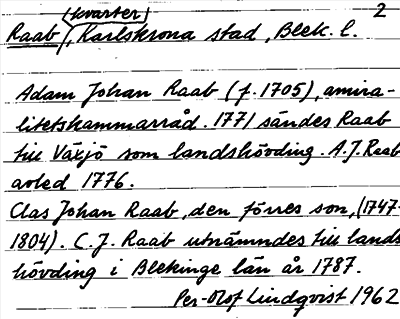 kvarter 2
Raab, Karlskrona stad, Blek. l.
Adam Johan Raab (f. 1705), amira-
litetskammarråd. 1771 sändes Raab
till Växjö som landshövding. A.J. Raab
avled 1776.
Clas Johan Raab, den förres son, (1747-
1804). C.J. Raab utnämndes till lands
hövding i Blekinge län år 1787.
Per-Olof Lindqvist 1962